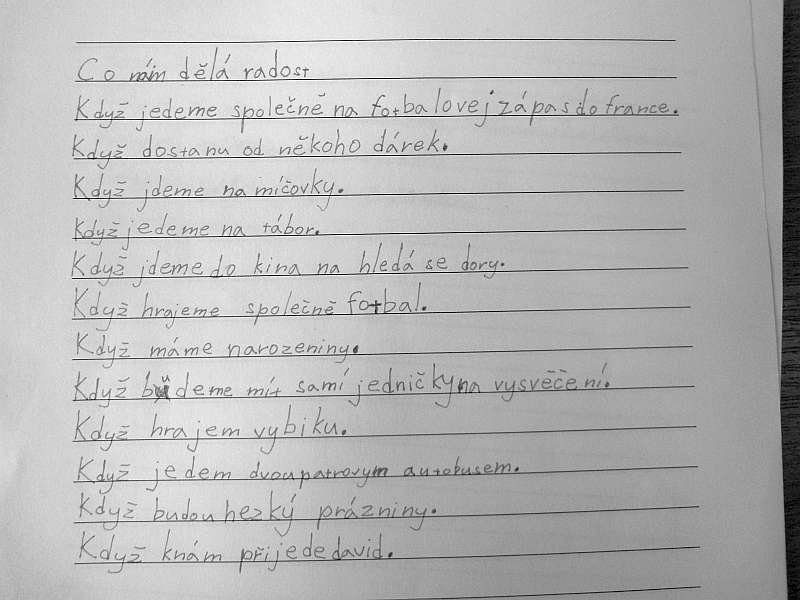 Co nám dělá radost
Když jedeme společně na fotbalovej zápas do france.
Když dostanu od někoho dárek.
Když jdeme na míčovky.
Když jedeme na tábor.
Když jdeme do kina na hledá se dory.
Když hrajeme společně fotbal.
Když máme narozeniny.
Když budeme mít samí jedničky na vysvěčení.
Když hrajem vybiku.
Když jedem dvoupatrovym autobusem.
Když budou hezký prázniny.
Když knám přijede david.